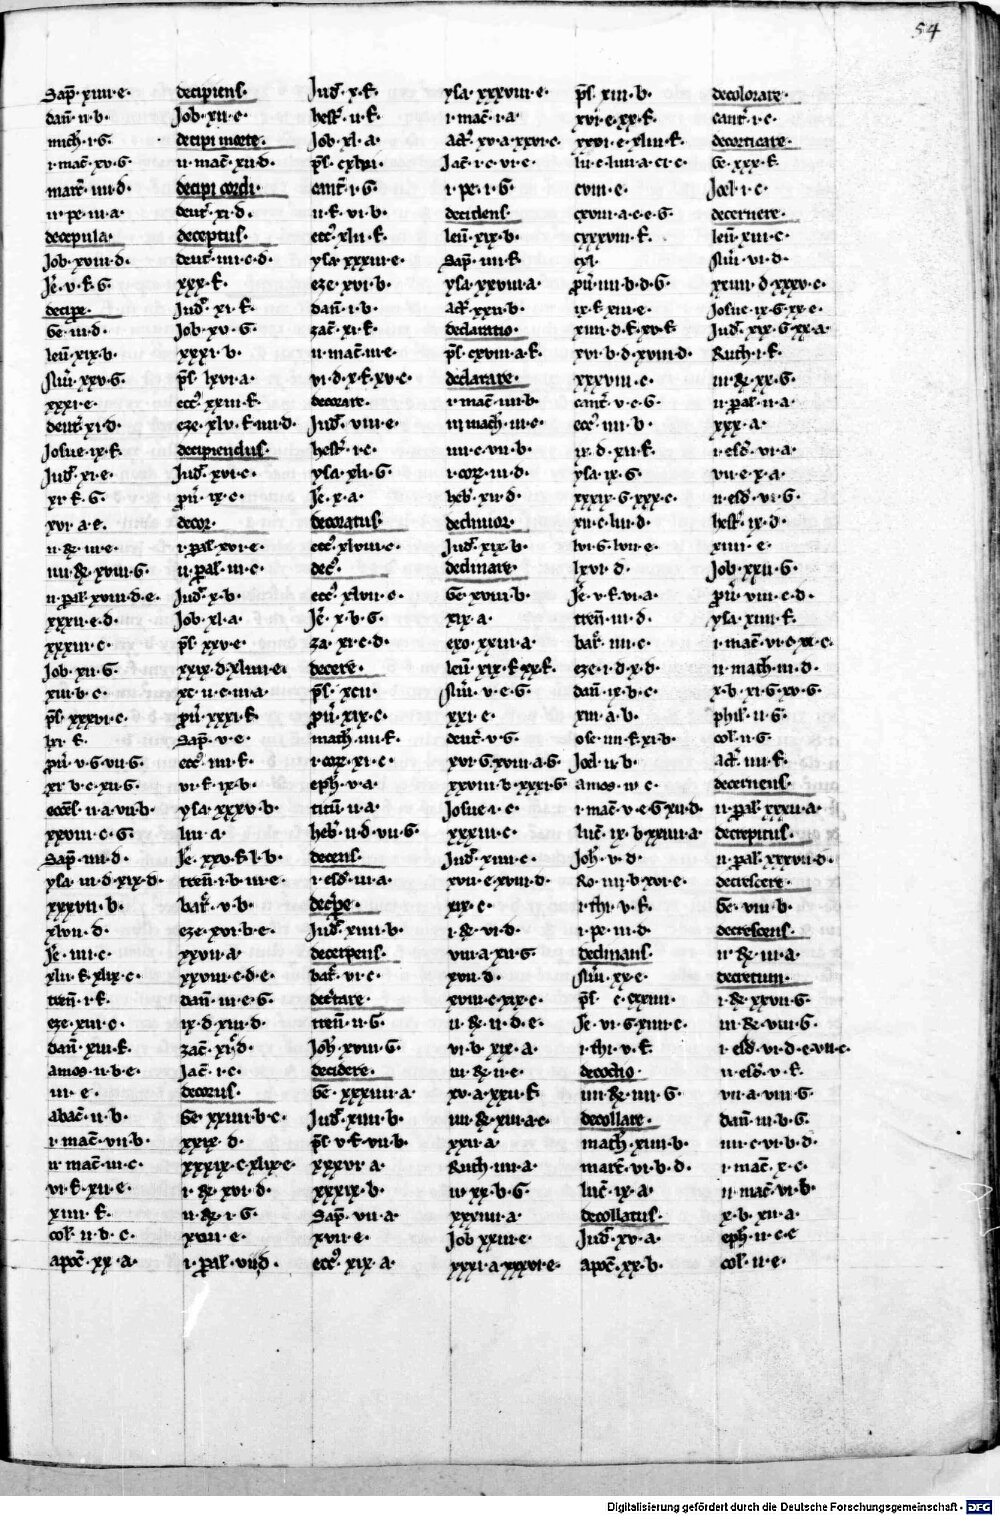 54
Sap̄· xiiii·e·
dan̄· ii·b·
mich·i·G·
i·mac̄·xv·G·
marc̄·iiii·d·
ii·pe·iii·a·
decepula·
Job·xviii·d·
Je·v·f·G·
decipe·
Ge·iii·d·
leu̅·xix·b·
Nu̅·xxv·G·
xxxi·e·
deut·xi·d·
Josue·ix·f·
Jud·xi·e·
xi·f·G·
xvi·a·e·
ii·&·iii·e·
iiii·&·xviii·G·
ii·pal·xviii·d·e·
xxxii·e·d·
xxxiii·c·
Job·xii·G·
xiii·b·c·
ps̄·xxxvi·c·
lxi·f·
pu̅·v·G·vii·G·
xi·b·c·xii·G·
eccl·ii·a·vii·b·
xxviii·c·G·
Sap·iiii·d·
ysa·iii·d·xix·d·
xxxvii·b·
xlvii·d·
Je·iiii·c·
xlii·f·xlix·c·
tren̄·i·f·
eze·xiii·c·
dan̄·xiii·f·
amos·ii·b·e·
iii·e·
abac̄·ii·b·
i·mac̄·vii·b·
ii·mac̄·iii·c·
vi·f·xii·e·
xiiii·f·
col·ii·b·c·
apoc̄·xx·a·
decipiens·
Job·xii·e·
decipi morte·
ii·mac̄·xii·d·
decipi cordi·
deut·xi·d·
deceptus·
deut·iiii·c·d·
xxx·f·
Jud·xi·f·
Job·xv·G·
xxxi·b·
ps̄·lxvi·a·
ecc·xxiii·f·
eze·xlv·f·iiii·d·
decipiendus·
Jud·xvi·c·
pu̅·ix·c·
decor·
i·pal·xvi·e·
ii·pal·iii·c·
Jud·x·b·
Job·xl·a·
ps̄·xxv·e·
xxix·d·xliiii·e·
xc·ii·c·iii·a·
pu̅·xxxi·f·
Sap·v·e·
ecc·iiii·f·
vi·f·ix·b·
ysa·xxxv·b·
liii·a·
Je·xxv·f·l·b·
tren̄·i·b·iii·e·
bar·v·b·
eze·xvi·b·e·
xxvii·a·
xxviii·c·d·e·
dan̄·iii·e·G·
ix·d·xiii·d·
zac̄·xi·d·
Jac̄·i·c·
decorus·
Ge·xxiiii·b·c·
xxix·d·
xxxix·c·xlix·e·
i·&·xvi·d·
ii·&·i·G·
xviii·e·
i·pal·viii·d·
Jud·x·f·
hest·ii·f·
Job·xl·a·
ps̄·cxlvi·
cant·i·G·
ii·f·vi·b·
ecc·xlii·f·
ysa·xxxiii·e·
eze·xvi·b·
dan̄·i·b·
zac̄·xi·f·
ii·mac̄·iii·e·
vi·d·x·f·xv·c·
decorare·
Jud·viii·e·
hest·i·c·
ysa·xli·G·
Je·x·a·
decoratus·
ecc·xlviii·c·
dec·
ecc·xlvii·c·
Je·x·b·G·
za·xi·c·d·
decere·
ps̄·xcii·
pu̅·xix·c·
math·iiii·f·
i·cor·xi·c·
eph·v·a·
titu̅·ii·a·
heb·ii·d·vii·G·
decens·
i·esd·iii·a·
decerpe·
Jud·xiiii·b·
decerpens·
bar·vi·c·
decertare·
tren̄·ii·G·
Joh·xviii·G·
decidere·
Ge·xxxiiii·a·
Jud·xiiii·b·
ps̄·v·f·vii·b·
xxxvi·a·
xxxix·b·
Sap·vii·a·
xvii·e·
ecc·xix·a·
ysa·xxxviii·e·
i·mac̄·i·a·
act·xv·a·xxvi·c·
Jac̄·i·c·vi·e·
i·pe·i·G·
decidens·
leu̅·xix·b·
Sap·iiii·f·
ysa·xxviii·a·
act·xxii·b·
declaratio·
ps̄·cxviii·a·f·
declarare·
i·mac̄·iiii·b·
iii mach·iii·e·
iiii·c·vii·b·
i·cor·iii·d·
heb·xii·d·
declinior·
Jud·xix·b·
declinare·
Ge·xviii·b·
xix·a·
exo·xxiii·a·
leu̅·xix·f·xx·f·
Nu̅·v·e·G·
xxi·e·
deut·v·G·
xvi·G·xviii·a·G·
xxviii·b·xxxi·G·
Josue·i·c·
xxxiii·c·
Jud·xiiii·c·
xvii·e·xviii·d·
xix·c·
i·&·vi·d·
viii·a·xii·G·
xvii·d·
xviii·c·xix·c·
ii·&·ii·d·e·
vi·b·xix·a·
iii·&·ii·e·
xv·a·xxii·f·
iiii·&·xiii·a·c·
xxii·a·
Ruth·iiii·a·
iii·xx·b·G·
xxxiiii·a·
Job xxiii·e·
xxxi·a·xxxvi·e·
ps̄·xiii·b·
xvi·e·xx·f·
xxvi·e·xliii·f·
lii·c·liiii·a·ci·c·
cviii·e·
cxviii·a·c·e·G·
cxxxviii·f·
cxl·
pu̅·iiii·b·d·G·
ix·f·xiii·e·
xiiii·d·f·xv·f·
xvi·b·d·xviii·d·
xxxviii·c·
cant·v·c·G·
ecc·iiii·b·
ix·d·xii·f·
ysa·ix·G·
xxix·G·xxx·c·
xli·c·liii·d·
lvi·G·lvii·e·
lxvi·d·
Je·v·f·vi·a·
tren̄·iii·d·
bar·iiii·c·
eze·i·d·x·d·
dan̄·ix·b·c·
xiii·a·b·
ose·iiii·f·xi·b·
Joel·ii·b·
amos·iv·c·
i·mac̄·v·e·G·xii·d·
luc̄·ix·b·xxiiii·a·
Joh·v·d·
Ro·iiii·b·xvi·e·
i·thi·v·f·
i·pe·iii·d·
declinans·
Nu̅·xx·e·
ps̄·c·cxxiiii·
Je·vi·G·xiiii·c·
i·thi·v·f·
decoctio·
iiii·&·iiii·G·
decollare·
math·xiiii·b·
marc̄·vi·b·d·
luc̄·ix·a·
decollatus·
Jud·xv·a·
apoc̄·xx·b·
decolorare·
cant·i·c·
decorticare·
Ge·xxx·f·
Joel·i·c·
decernere·
leu̅·xiii·c·
Nu̅·vi·d·
xxiiii·d·xxxv·c·
Josue·ix·G·xx·e·
Jud·xix·G·xx·a·
Ruth·i·f·
iii·&·xx·G·
ii·pal·ii·a·
xxx·a·
i·esd·vi·a·
vii·e·x·a·
ii·esd·vi·G·
hest·ix·d·
xiiii·e·
Job·xxii·G·
pu̅·viii·c·d·
ysa·xiiii·f·
i·mac̄·vi·c·ix·c·
ii·math·iii·d·
x·b·xi·G·xv·G·
phil·ii·G·
col·ii·G·
act·iiii·f·
decernens·
ii·pal·xxxii·a·
decrepitus·
ii·pal·xxxvii·d·
decrescere·
Ge·viii·b·
decrescens·
ii·&·iii·a·
decretum·
i·&·xxvii·G·
iii·&·viii·G·
i·esd·vi·d·e·vii·c·
ii·esd·v·f·
vii·a·viii·G·
dan̄·iii·b·G·
iiii·c·vi·b·d·
i·mac̄·x·c·
ii·mac̄·vi·b·
x·b·xii·a·
eph·ii·c·c
col·ii·e·
Digitalisierung gefördert durch die Deutsche Forschungsgemeinschaft - DFG